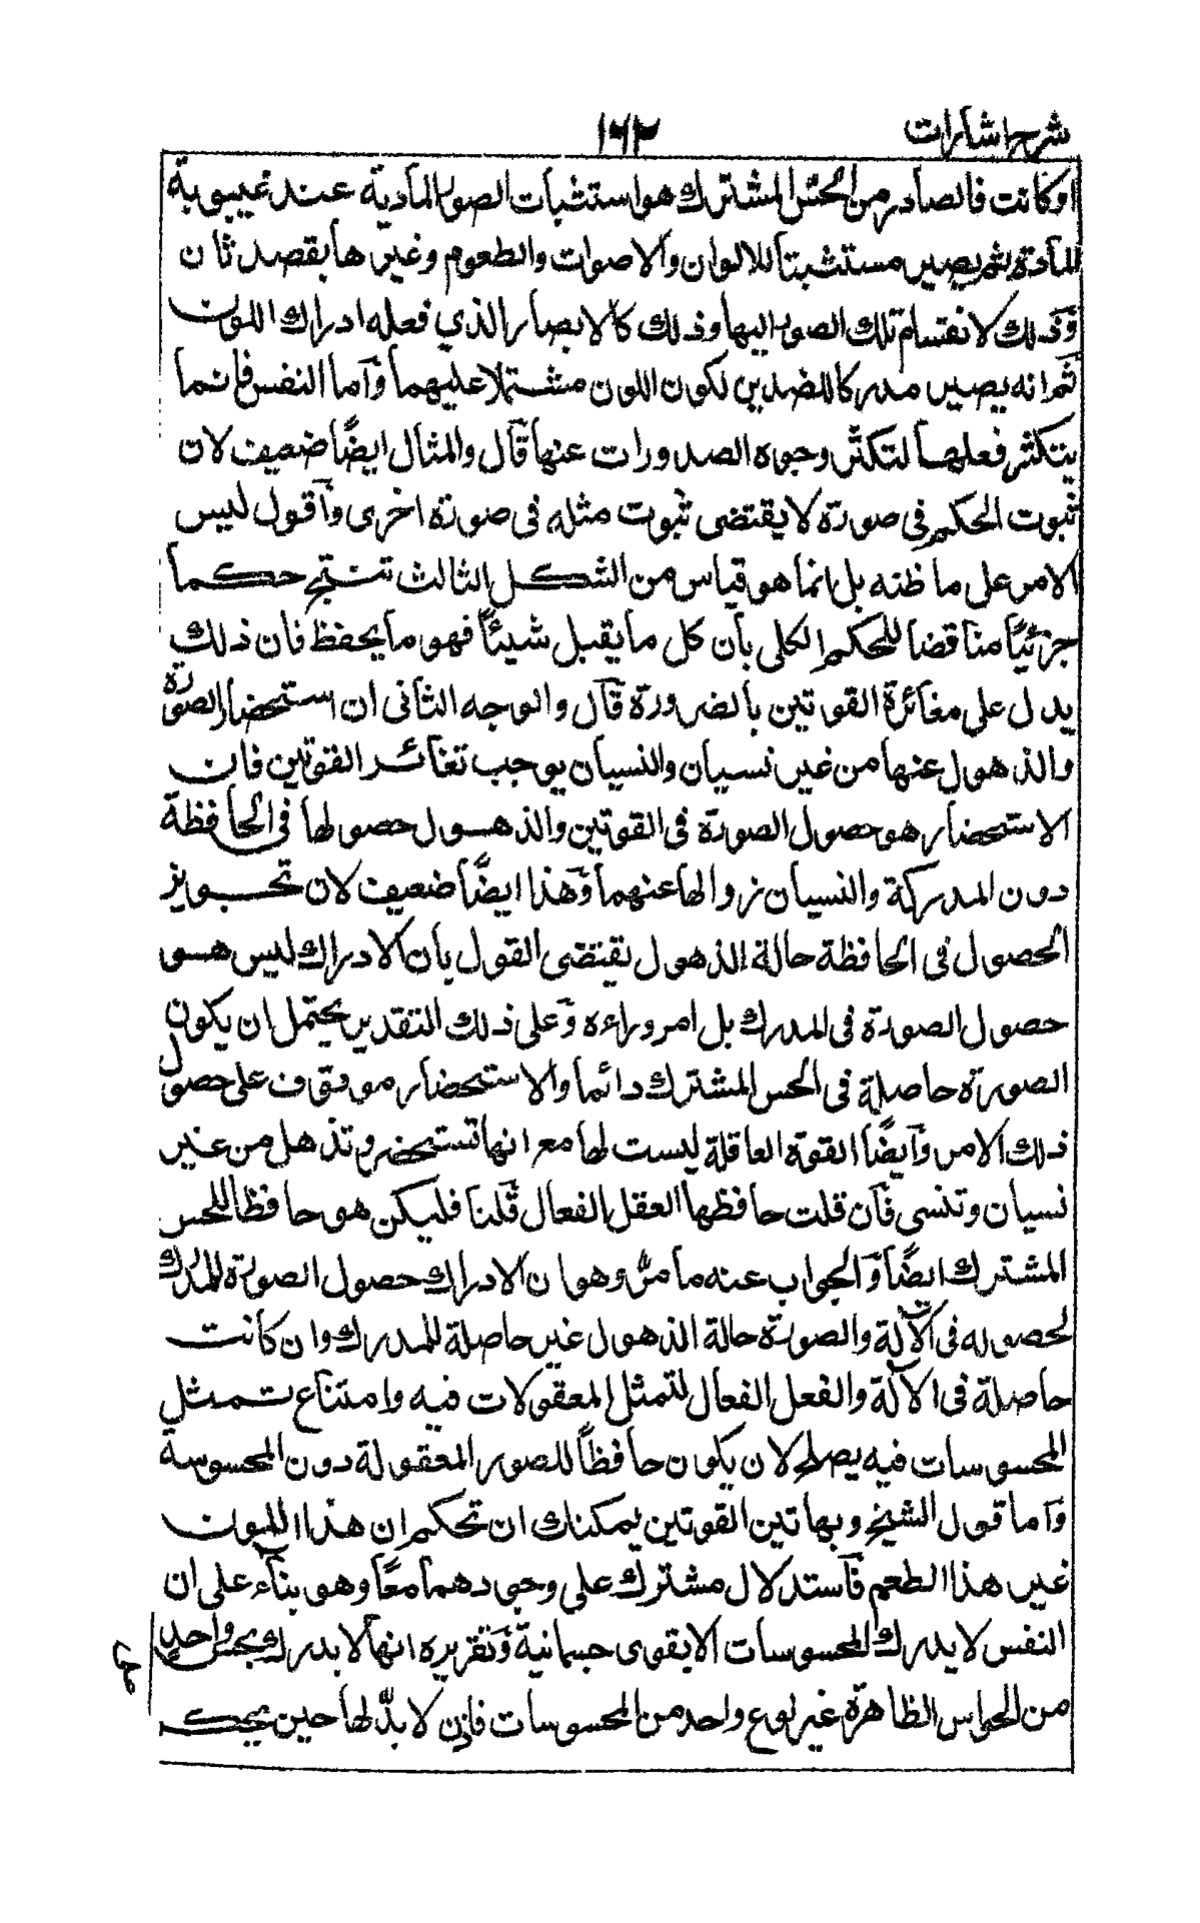 شرح اشارات ١٦٢
او كانت فالصادر من الحس المشترك هو استثبات الصور المادية عند غيبوبة
المادة ثم يصير مستثبتا للالوان والاصوات والطعوم وغيرها بقصد ثان
وذلك لانقسام تلك الصور اليها وذلك كالابصار الذي فعله ادراك اللون
ثم انه يصير مدركا للضدين لكون اللون مشتملا عليهما وآما النفس فانما
يتكثر فعلها لتكثر وجوه الصدورات عنها قآل والمثال ايضًا ضعيف لان
ثبوت الحكم في صورة لا يقتضى ثبوت مثله فى صورة اخرى وآقول ليس
الامر على ما ظنه بل انما هو قياس من الشكل الثالث تنتج حكما
جزئيًا مناقضا للحكم الكلى بان كل ما يقبل شيئًا فهو ما يحفظ فان ذلك
يدل على مغائرة القوتين بالضرورة قآل والوجه الثانى ان استحضار الصورة
والذهول عنها من غير نسيان والنسيان يوجب تغائر القوتين فان
الاستحضار هو حصول الصورة فى القوتين والذهول حصولها فى الحافظة
دون المدركة والنسيان زوالها عنهما وهذا ايضًا ضعيف لان تجويز
الحصول فى الحافظة حالة الذهول يقتضى القول بان الادراك ليس هو
حصول الصورة فى المدرك بل امر وراءه وعلى ذلك التقدير يحتمل ان يكون
الصورة حاصلة فى الحس المشترك دائما والاستحضار موقوف على حصول
ذلك الامر وآيضًا القوة العاقلة ليست لها مع انها تستحضر وتذهل من غير
نسيان وتنسى فآن قلت حافظها العقل الفعال قلنا فليكن هو حافظا للحس
المشترك ايضًا وآلجواب عنه ما مرّ وهو ان الادراك حصول الصورة للمدرك
لحصوله فى الآلة والصورة حالة الذهول غير حاصلة للمدرك وان كانت
حاصلة فى الآلة والفعل الفعال لتمثل المعقولات فيه وامتناع تمثل
المحسوسات فيه يصلح لان يكون حافظاً للصور المعقولة دون المحسوسة
وآما قول الشيخ وبهاتين القوتين يمكنك ان تحكم ان هذا اللون
غير هذا الطعم فآستدلال مشترك على وجودهما معًا وهو بناء على ان
النفس لا يدرك المحسوسات الا بقوى جسمانية وتقريره انها لا يدرك بحس واحد
من الحواس الظاهرة غير نوع واحد من المحسوسات فاذن لا بدّ لها حين يحكـ